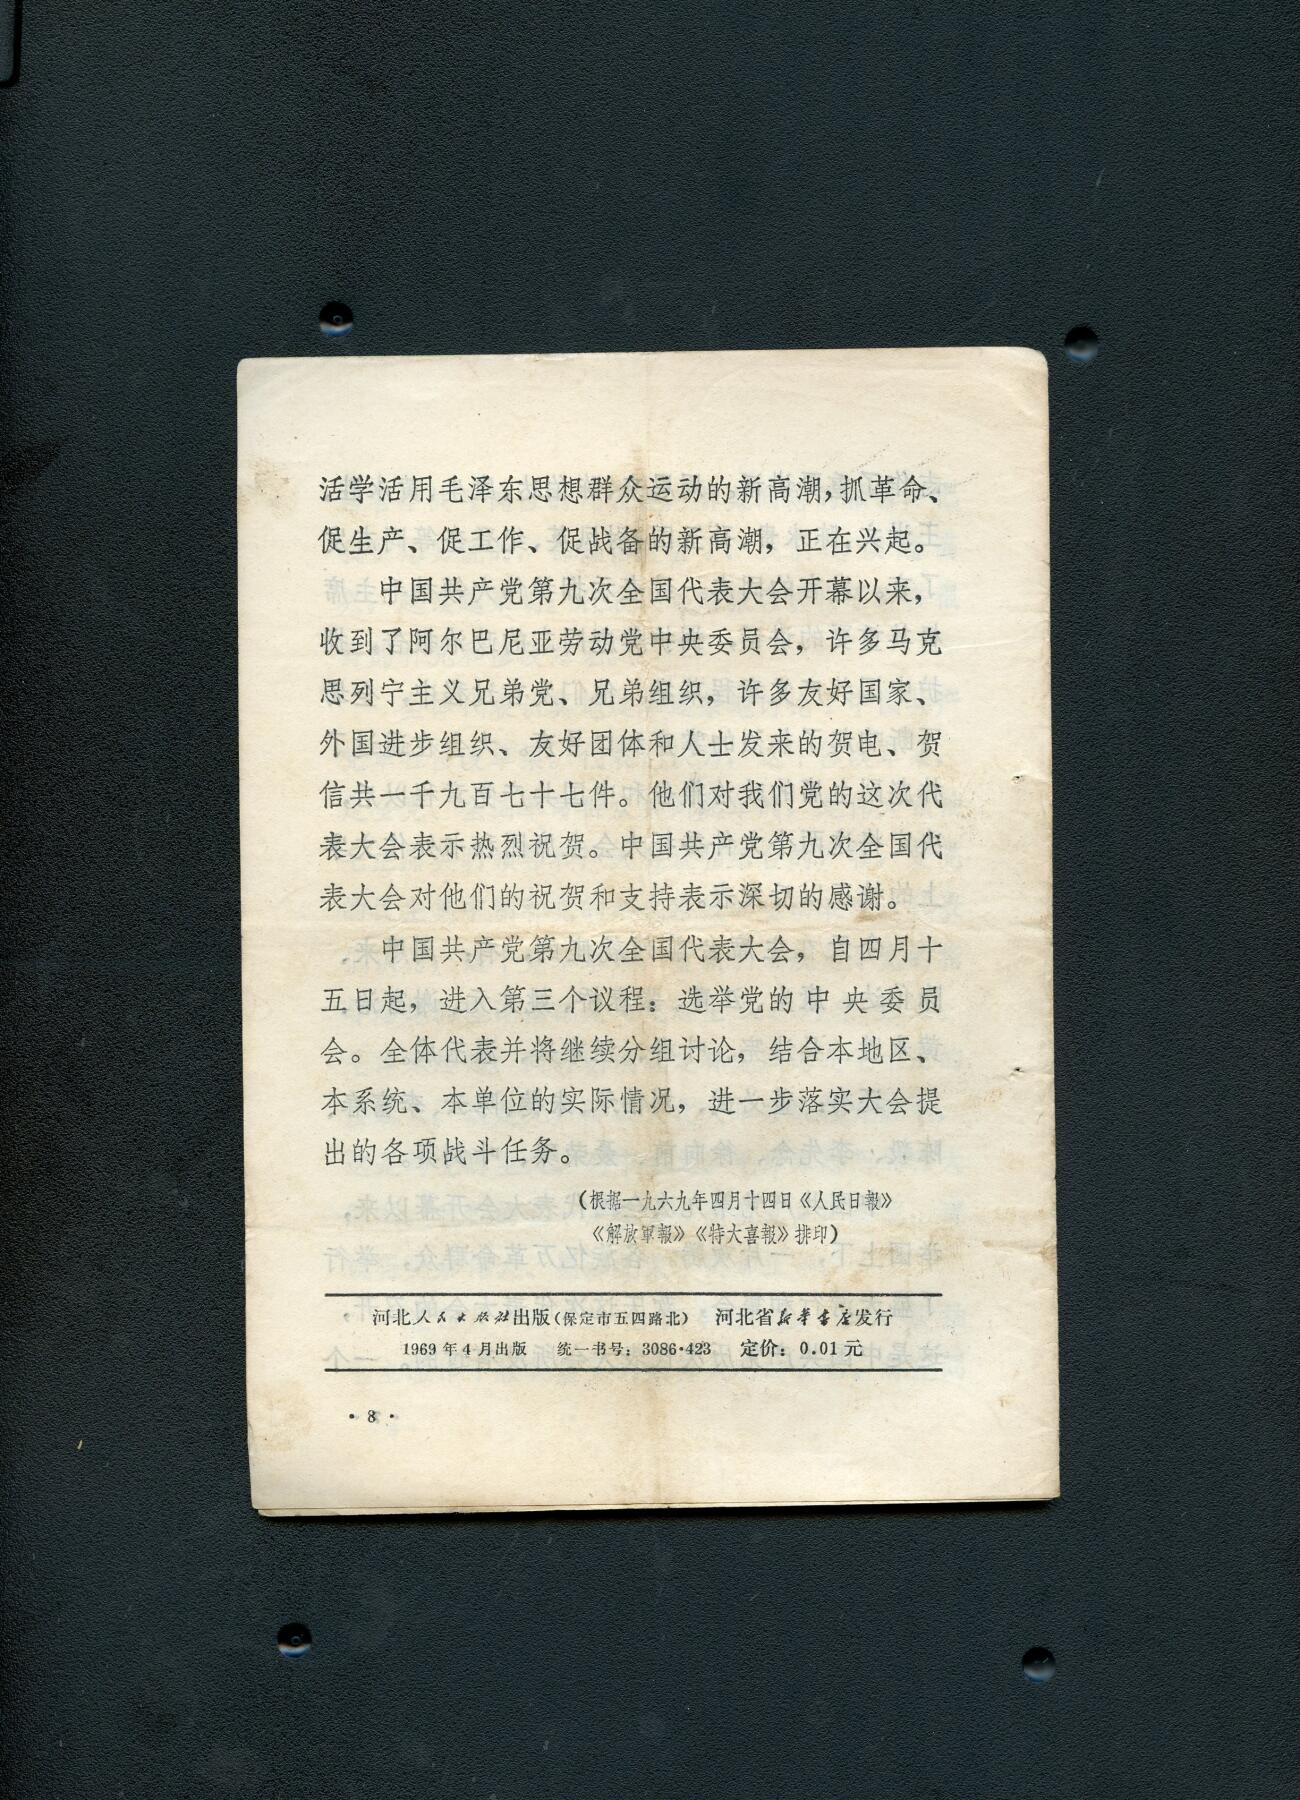 活学活用毛泽东思想群众运动的新高潮，抓革命、
促生产、促工作、促战备的新高潮，正在兴起。
中国共产党第九次全国代表大会开幕以来，
收到了阿尔巴尼亚劳动党中央委员会，许多马克
思列宁主义兄弟党、兄弟组织，许多友好国家、
外国进步组织、友好团体和人士发来的贺电、贺
信共一千九百七十七件。他们对我们党的这次代
表大会表示热烈祝贺。中国共产党第九次全国代
表大会对他们的祝贺和支持表示深切的感谢。
中国共产党第九次全国代表大会，自四月十
五日起，进入第三个议程：选举党的中央委员
会。全体代表并将继续分组讨论，结合本地区、
本系统、本单位的实际情况，进一步落实大会提
出的各项战斗任务。
（根据一九六九年四月十四日《人民日報》
《解放軍報》《特大喜報》排印）
河北人民出版社出版（保定市五四路北） 河北省新华书店发行
1969年4月出版 统一书号：3086·423 定价：0.01元
· 8 ·